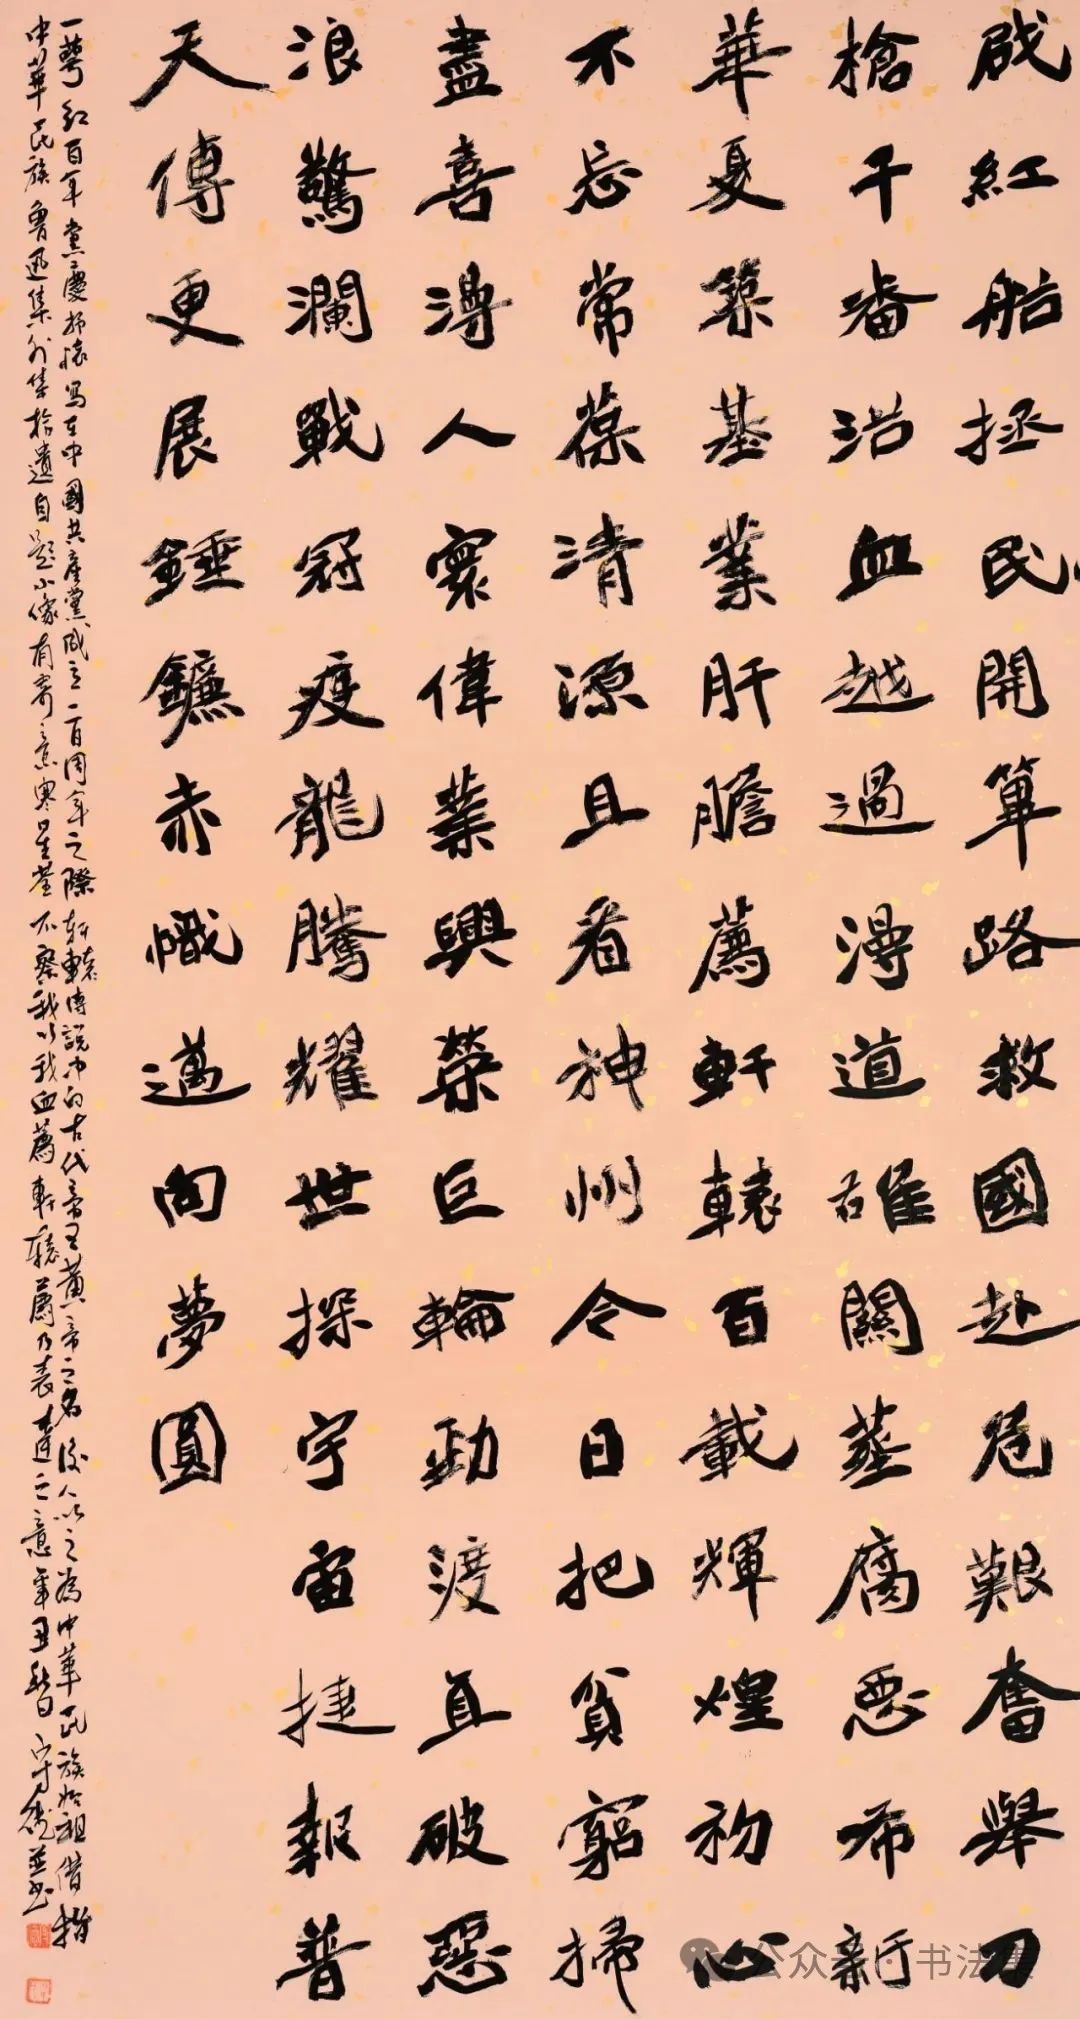 啟紅船拯民開篳路救國赴危艱奮舉刀
槍千番沿血越過得道雄關蕩腐惡布新
華夏築基業肝膽薦軒轅百載輝煌初心
不忘常葆清源且看神州今日把貧窮掃
盡喜得人寰偉業興榮巨輪勁渡直破惡
浪驚瀾戰冠疫龍騰耀世探宇宙捷報普
天傳更展錘鐮赤幟邁向夢圓
一萼紅百年黨慶抒懷寫在中國共產黨成立一百周年之際軒轅傳說中的古代帝王黃帝之名後人以之為中華民族始祖借指
中華民族魯迅集外集拾遺自題小像有寄意寒星荃不察我以我血薦軒轅薦乃表達之意辛丑春守德并書
公众号·书法集